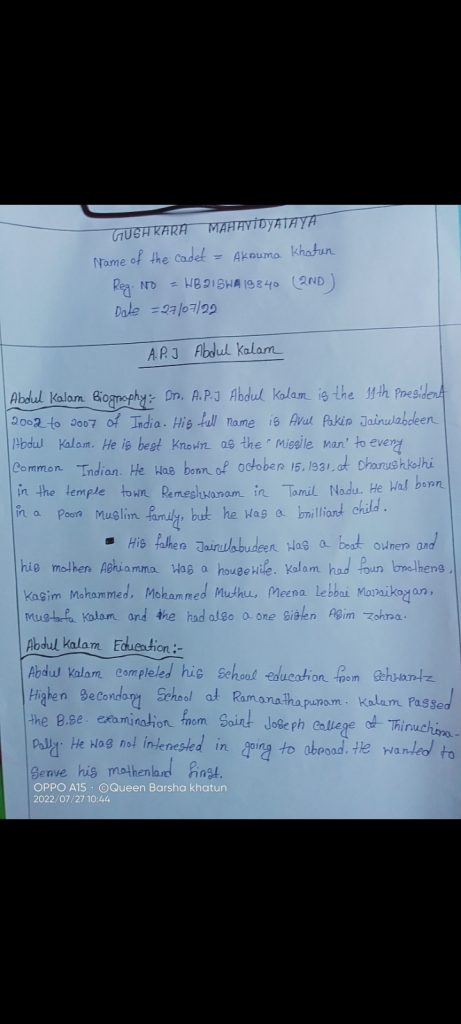 GUSHKARA MAHAVIDYALAYA
Name of the cadet = Aknuma Khatun
Reg. NO = WB21SWA19840 (2ND)
Date = 27/07/22
A.P.J Abdul Kalam
Abdul Kalam Biography:- Dr. A.P.J Abdul Kalam is the 11th President
2002 to 2007 of India. His full name is Avul Pakir Jainulabdeen
Abdul Kalam. He is best known as the "Missile Man" to every
Common Indian. He was born of October 15, 1931, at Dhanushkothi
in the temple town Remeshwanam in Tamil Nadu. He was born
in a poor Muslim family, but he was a brilliant child.
▪ His father Jainulabudeen was a boat owner and
his mother Ashiamma was a housewife. Kalam had four brothers,
Kasim Mohammed, Mohammed Muthu, Meena Lebbai Maraikayan,
Mustafa Kalam and he had also a one sister Asim Zohra.
Abdul Kalam Education:-
Abdul Kalam completed his School education from Schwantz
Higher Secondary School at Ramanathapuram. Kalam Passed
the B.Sc. examination from Saint Joseph College of Thiruchira-
Pally. He was not interested in going to abroad. He wanted to
serve his motherland first.
OPPO A15 · ©Queen Barsha khatun
2022/07/27 10:44